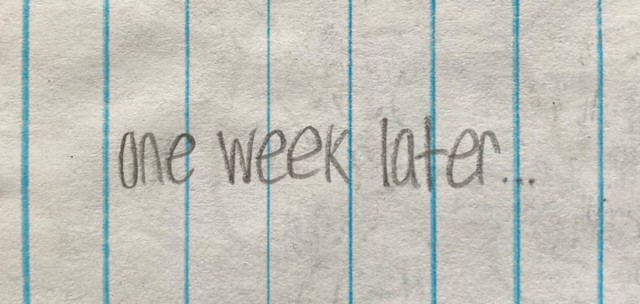 one week later...